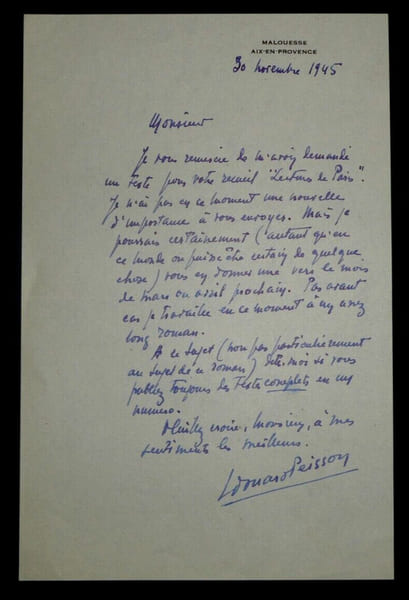 MALOUESSE
AIX-EN-PROVENCE
30 novembre 1945
Monsieur
Je vous remercie de m'avoir demandé
un texte pour votre recueil "Lectures de Paris".
Je n'ai pas en ce moment une nouvelle
d'importance à vous envoyer. Mais je
pourrais certainement (autant qu'en
ce monde on puisse être certain de quelque
chose) vous en donner une vers le mois
de mars ou avril prochain. Pas avant
car je travaille en ce moment à un assez
long roman.
A ce sujet (non pas particulièrement
au sujet de ce roman) dites-moi si vous
publiez toujours des textes complets en un
numéro.
Veuillez croire, Monsieur, à mes
sentiments les meilleurs.
Edouard Peisson